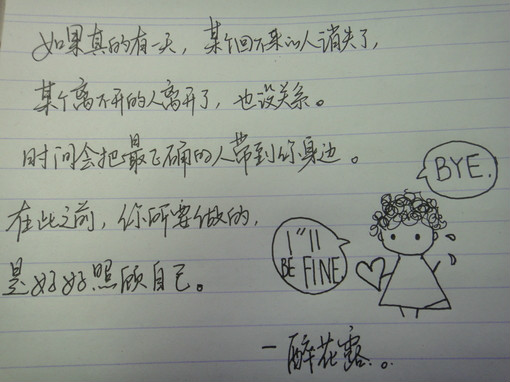 如果真的有一天，某个回不来的人消失了，
某个离不开的人离开了，也没关系。
时间会把最正确的人带到你身边。
在此之前，你所要做的，
是好好照顾自己。
BYE.
I"ll
BE FINE
一醉花露。。